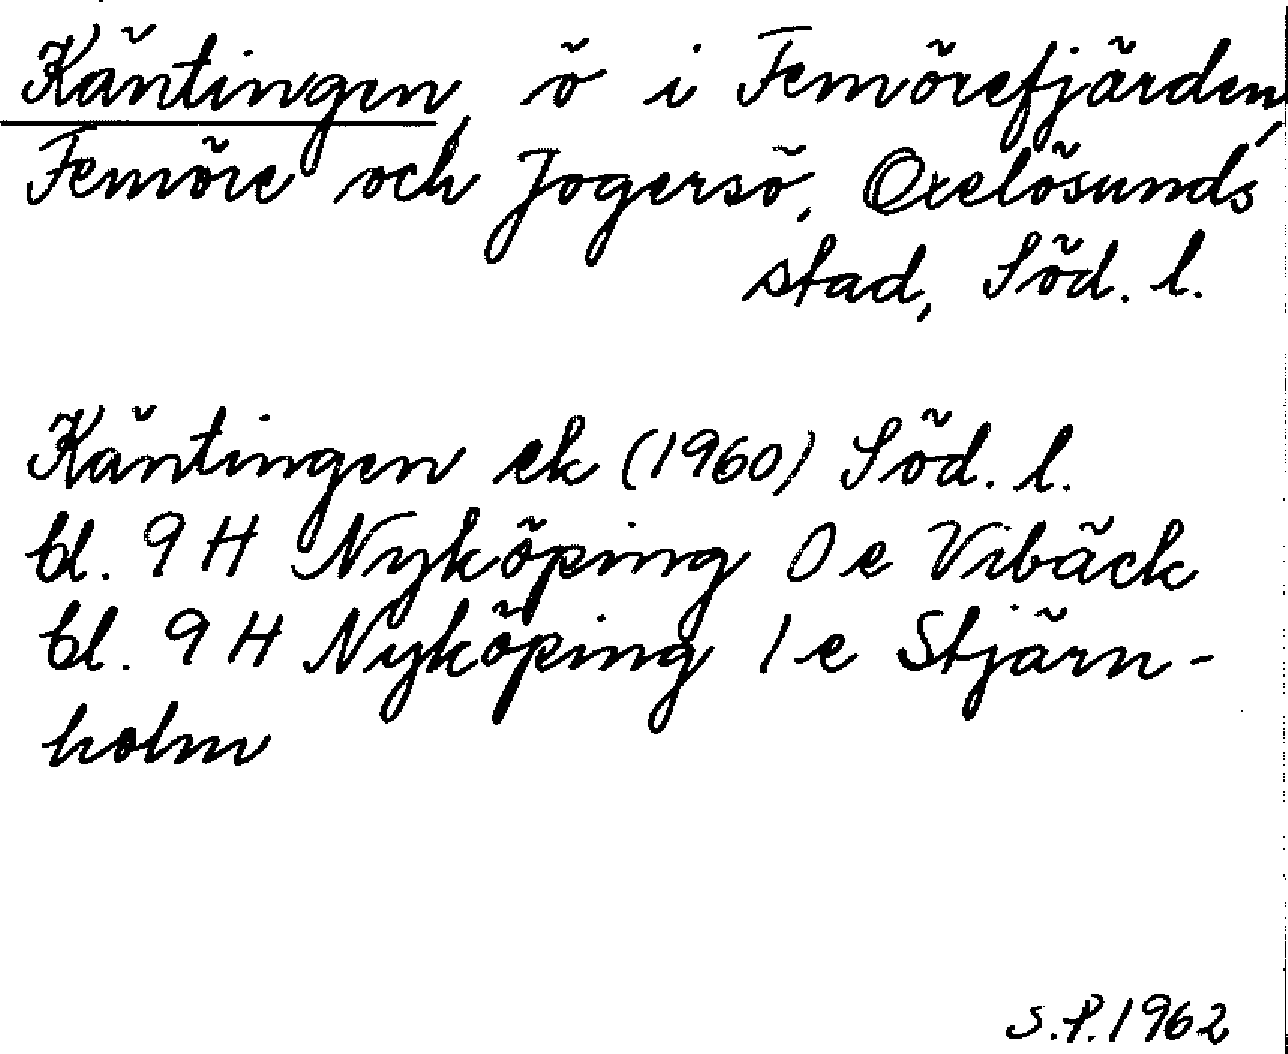 Käntingen, ö i Femörefjärden,
Femöre och Jogersö, Oxelösunds
stad, Söd. l.
Käntingen ek (1960) Söd. l.
bl. 9 H Nyköping 0 e Vrbäck
bl. 9 H Nyköping 1 e Stjärn-
holm
S.P. 1962